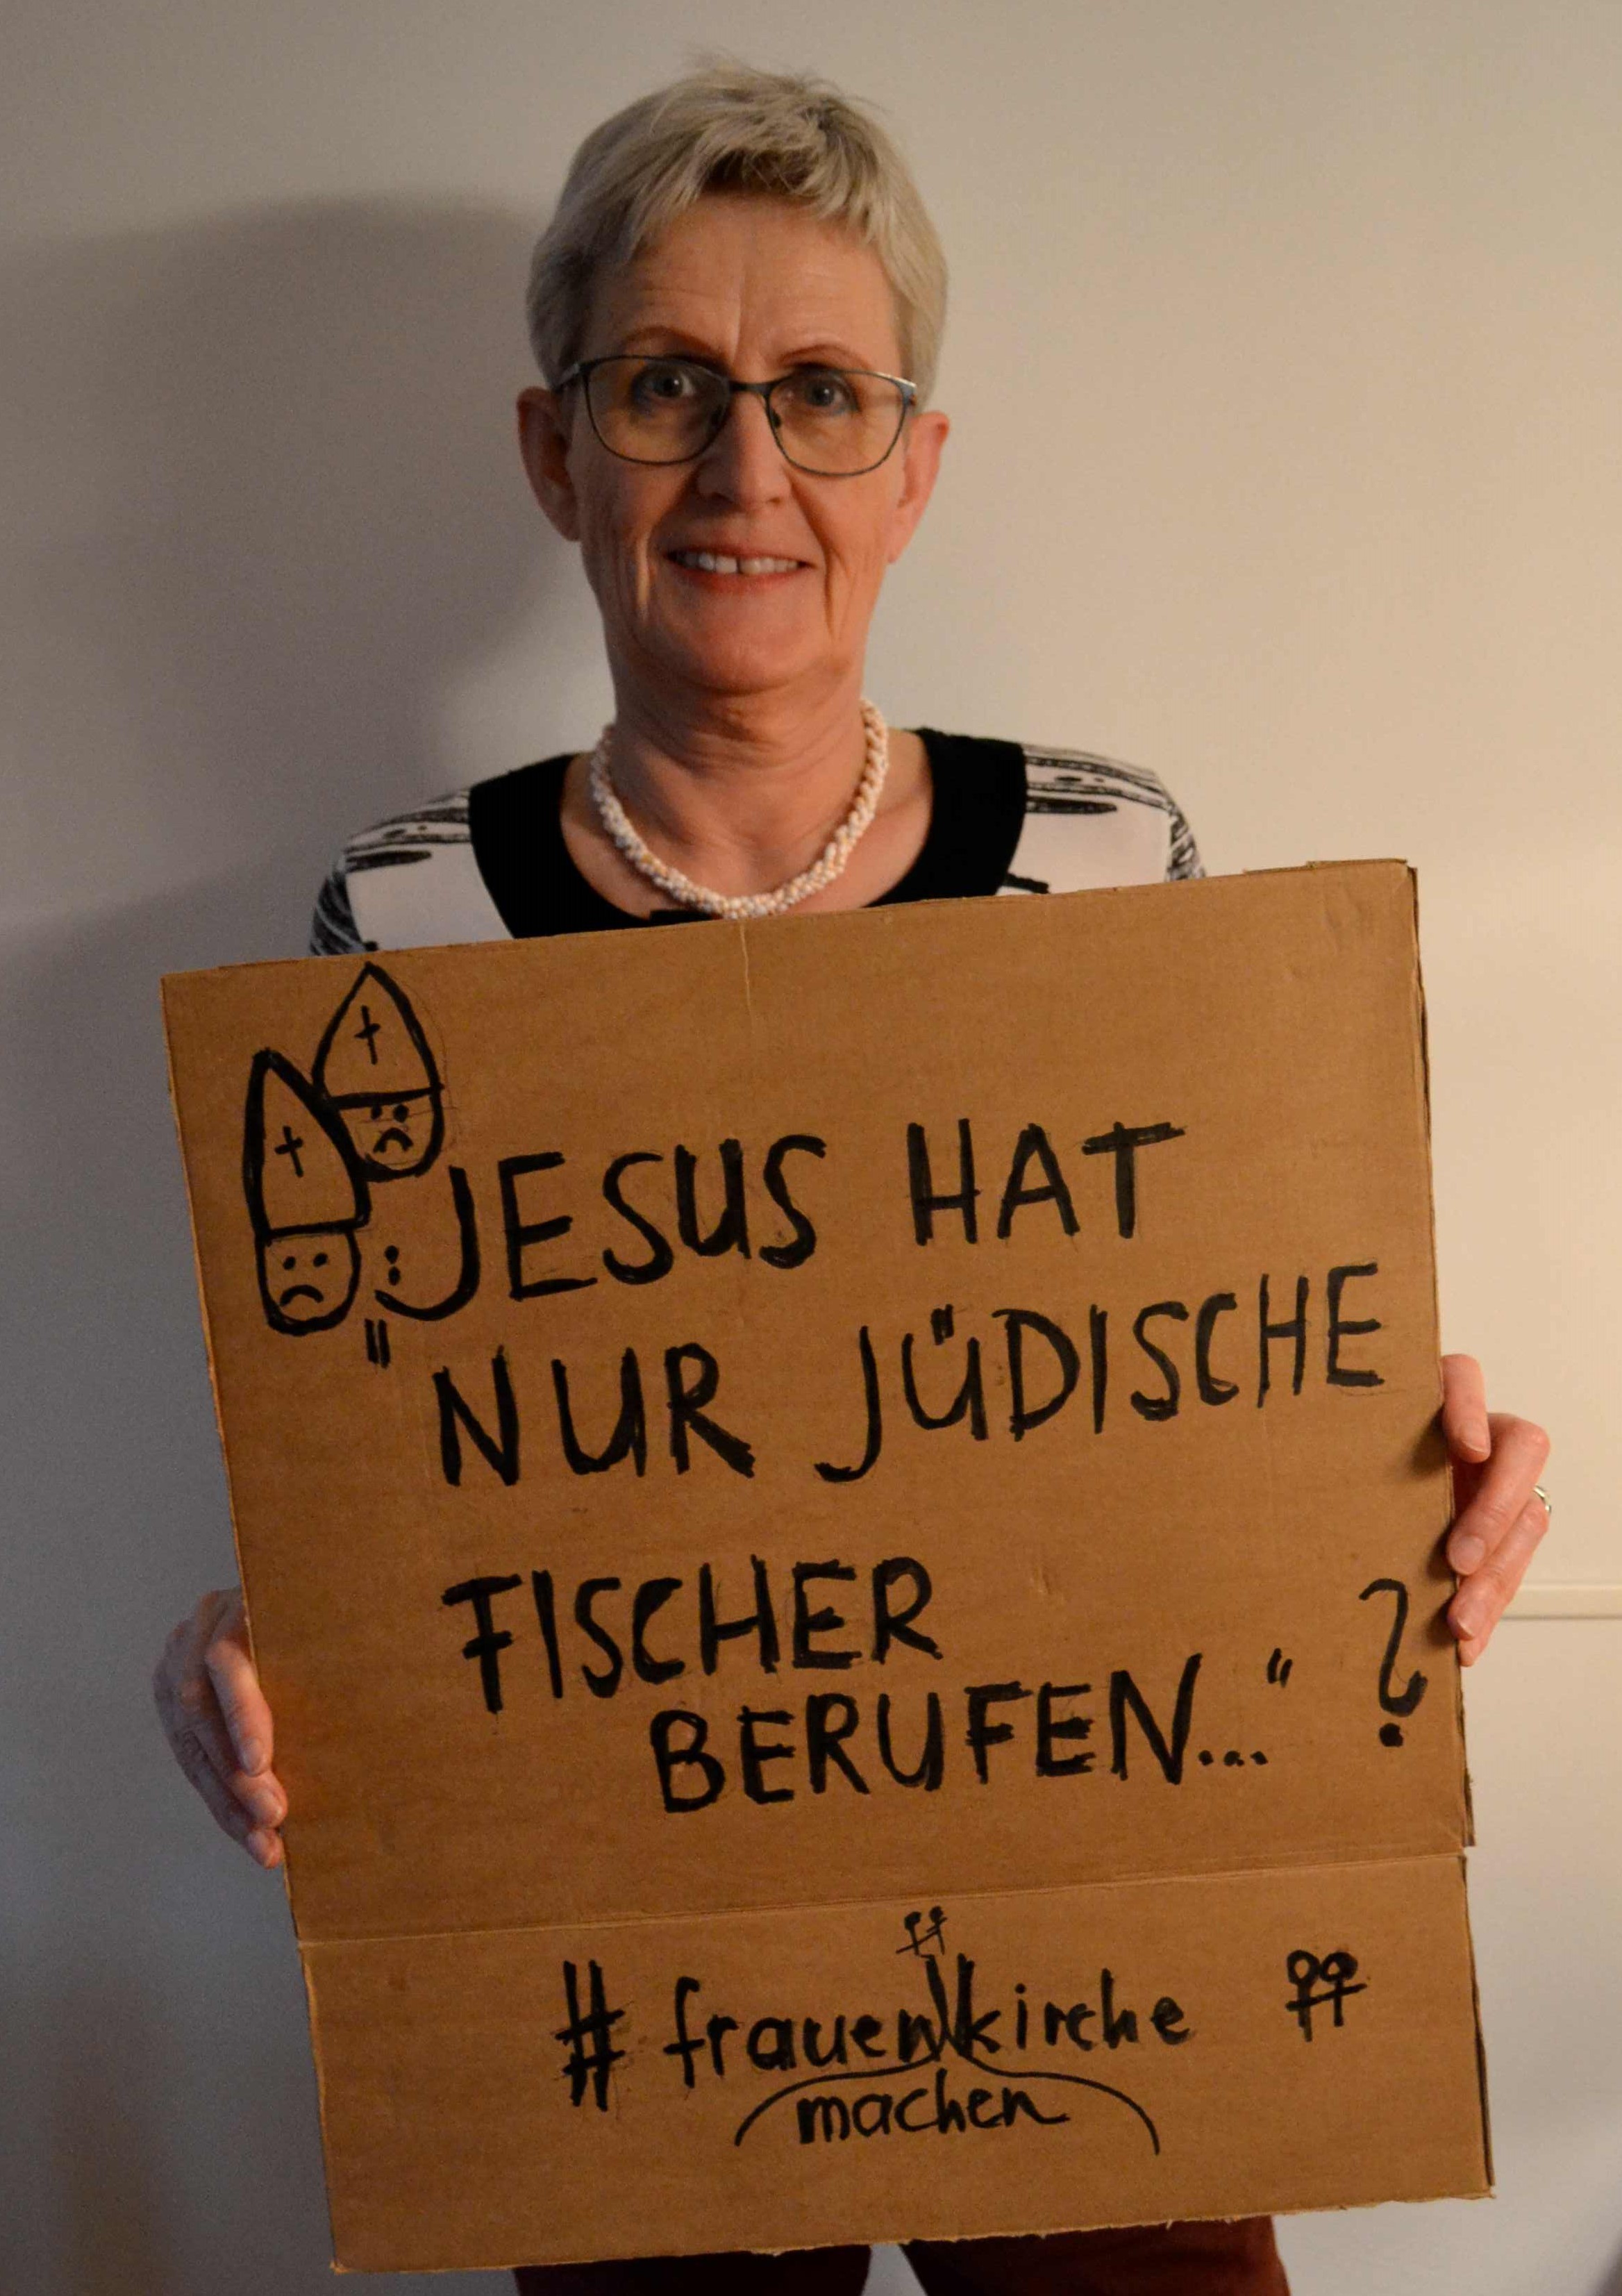 JESUS HAT
"NUR JÜDISCHE
FISCHER
BERUFEN..." ?
#frauenkirche
machen